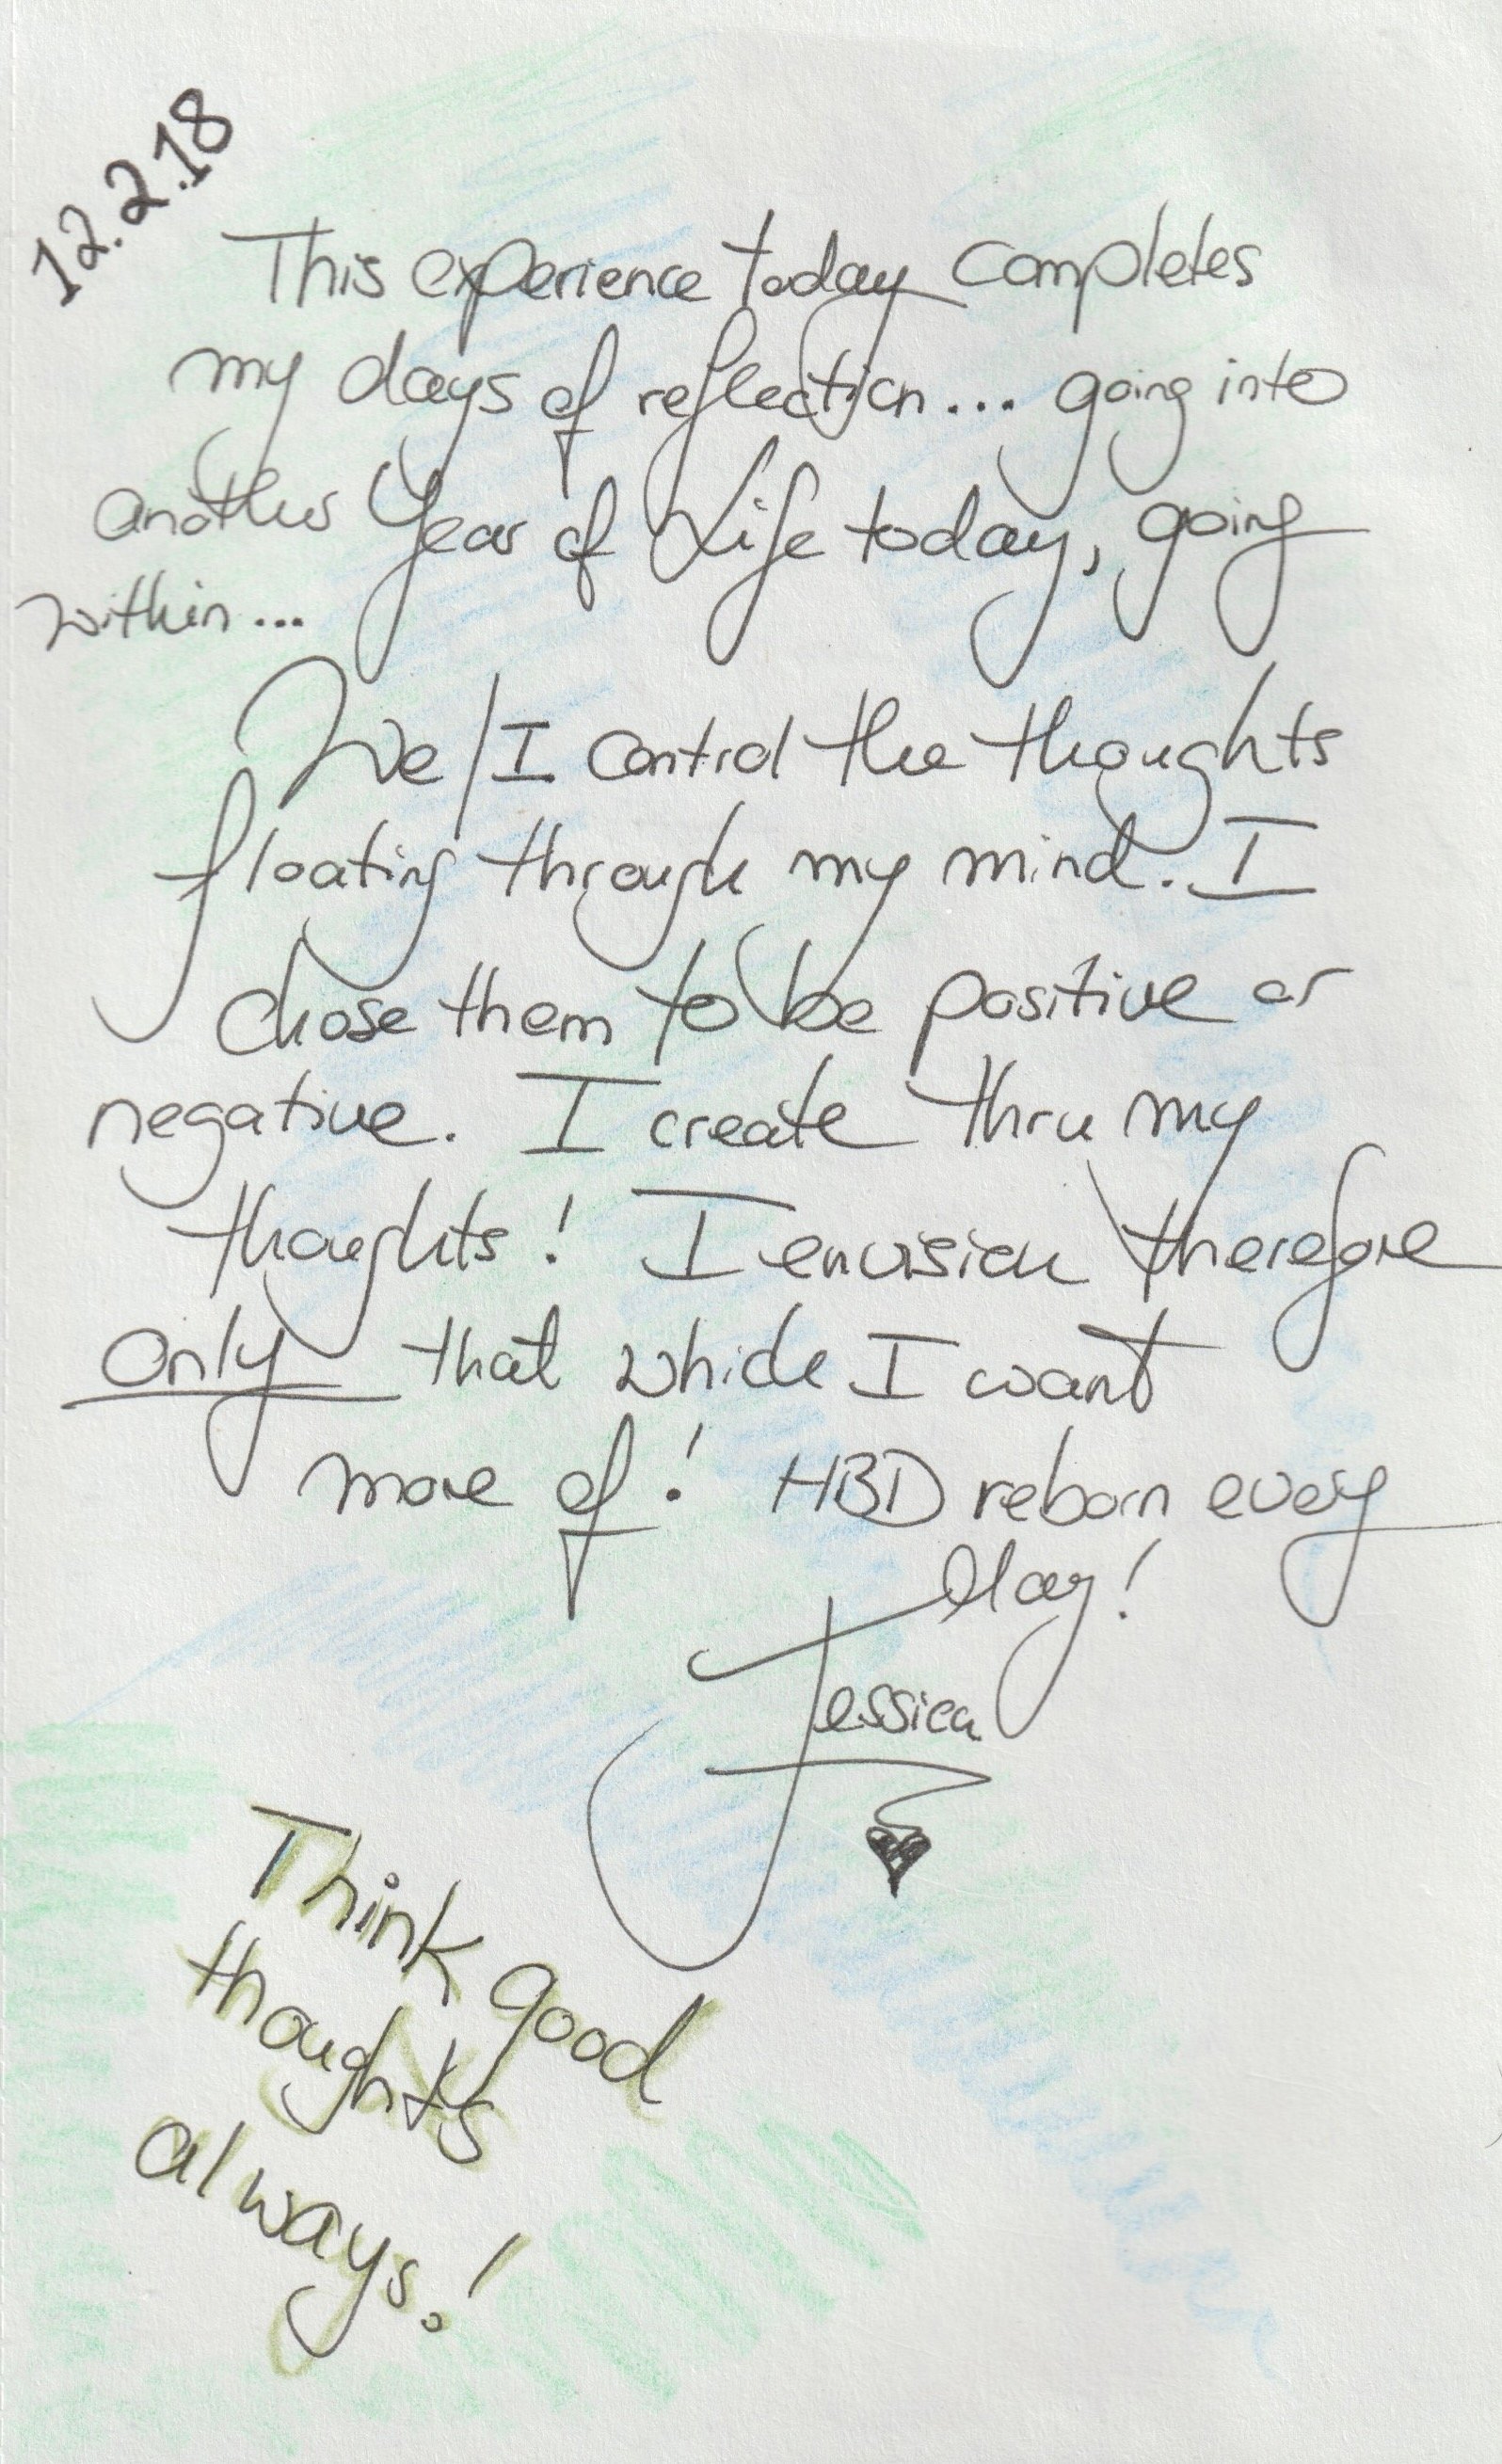 12.2.18
This experience today completes
my days of reflection... going into
another Year of Life today, going
within...
We/I control the thoughts
floating through my mind. I
chose them to be positive or
negative. I create thru my
thoughts! I envision therefore
only that which I want
more of! HBD reborn every
day!
Jessica
Think good
thoughts
always!